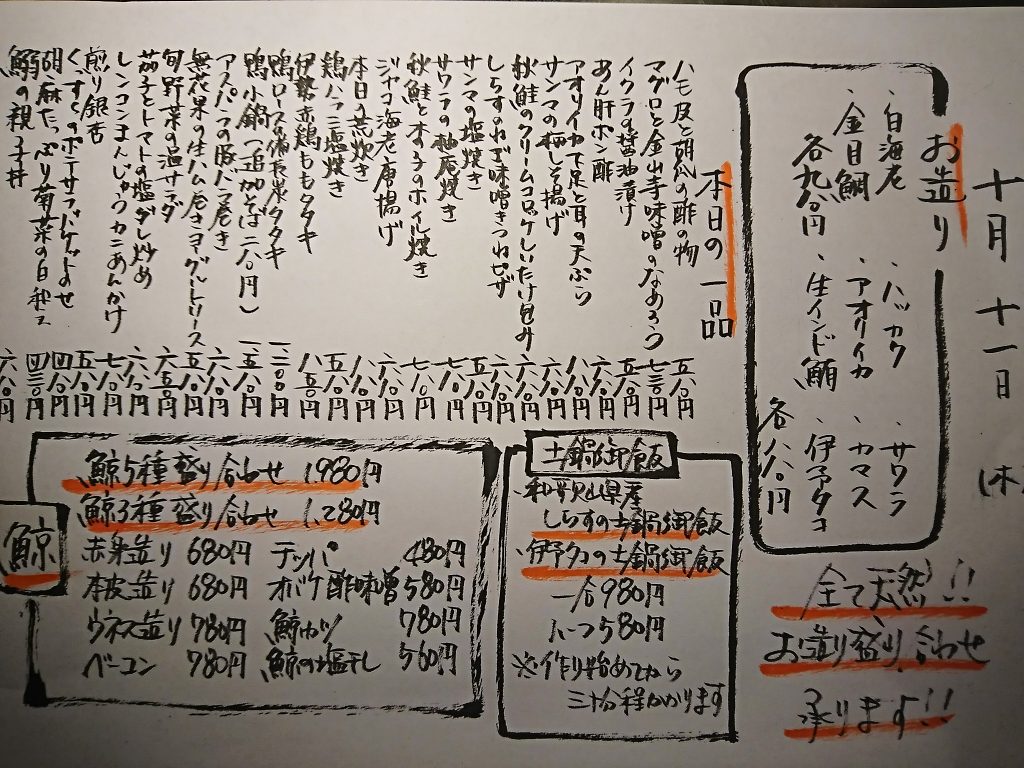 十月十一日
お造り
・白海老
・金目鯛
各九八〇円
・ハッカク
・アオリイカ
・生インド鮪
・サワラ
・カマス
・伊予タコ
各八八〇円
全て天然!!
お造り盛り合わせ
承ります!!
本日の一品
ハモ皮と胡瓜の酢の物 五八〇円
マグロと金山寺味噌のなめろう 七三〇円
イクラの醤油漬け
あん肝ポン酢
アオリイカ下足と耳の天ぷら
サンマの梅しそ揚げ
秋鮭のクリームコロッケしいたけ包み
しらすのねぎ味噌きつねピザ
サンマの塩焼き
サワラの柚庵焼き
秋鮭ときのこのホイル焼き
ジャコ海老唐揚げ
本日の荒炊き
鶏ハラミ塩焼き
伊勢赤鶏ももタタキ
鴨ロースの備長炭タタキ
鴨小鍋(追加そば二八〇円)
アスパラの豚バラ巻き
無花果の生ハム巻きヨーグルトソース
旬野菜の温サラダ
茄子とトマトの塩ダレ炒め
レンコンまんじゅうカニあんかけ
煎り銀杏
くんたまのポテサラバゲットのせ
胡麻たっぷり菊菜の白和え
鰯の親子丼
土鍋御飯
・和歌山県産
しらすの土鍋御飯
・伊予タコの土鍋御飯
一合980円
ハーフ580円
※作り始めてから
三十分程かかります
鯨
鯨5種盛り合わせ 1,980円
鯨3種盛り合わせ 1,280円
赤身造り 680円 テッパ 480円
本皮造り 680円 オバケ酢味噌 580円
ウネス造り 780円 鯨カツ 780円
ベーコン 780円 鯨の塩干し 560円